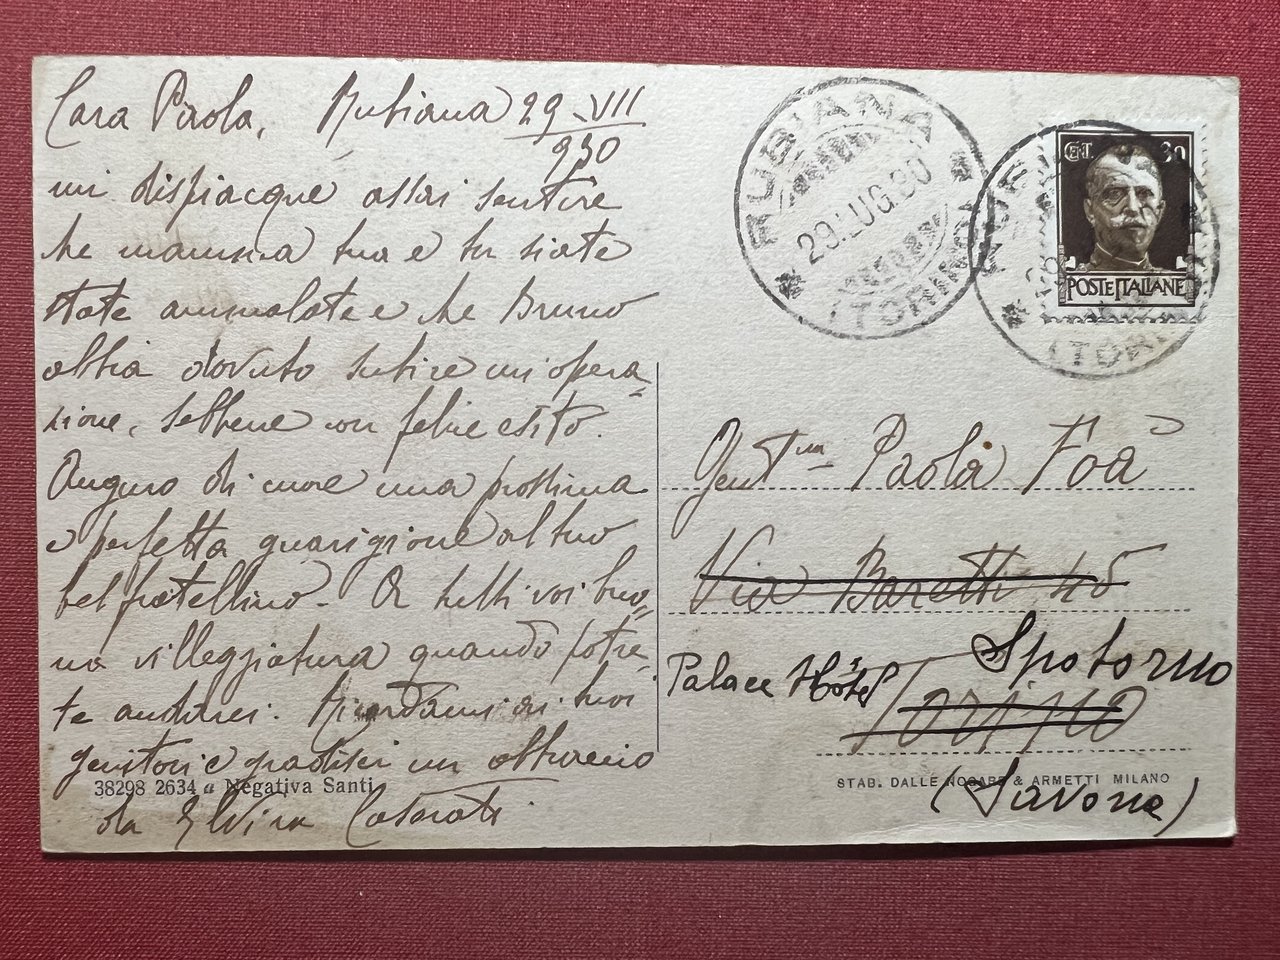 Cara Paola, Rubiana 29-VII
930
mi dispiacque assai sentire
che mamma tua e tu siate
state ammalate e che Bruno
abbia dovuto subire un'opera=
zione, sebbene con felice esito.
Auguro di cuore una prossima
e perfetta guarigione al tuo
bel fratellino - A tutti voi buo=
na villeggiatura quando potre=
te andarci. Ricordami ai tuoi
genitori e gradisci un abbraccio
da Elvira Casorati
38298 2634 a Negativa Santi
RUBIANA
29.LUG.30
(TORINO)
RUBIANA
(TORINO)
CENT. 30
POSTE ITALIANE
Gent.ma Paola Foà
Via Baretti 45
Palace Hôtel Spotorno
Torino
(Savona)
STAB. DALLE NOGARE & ARMETTI MILANO